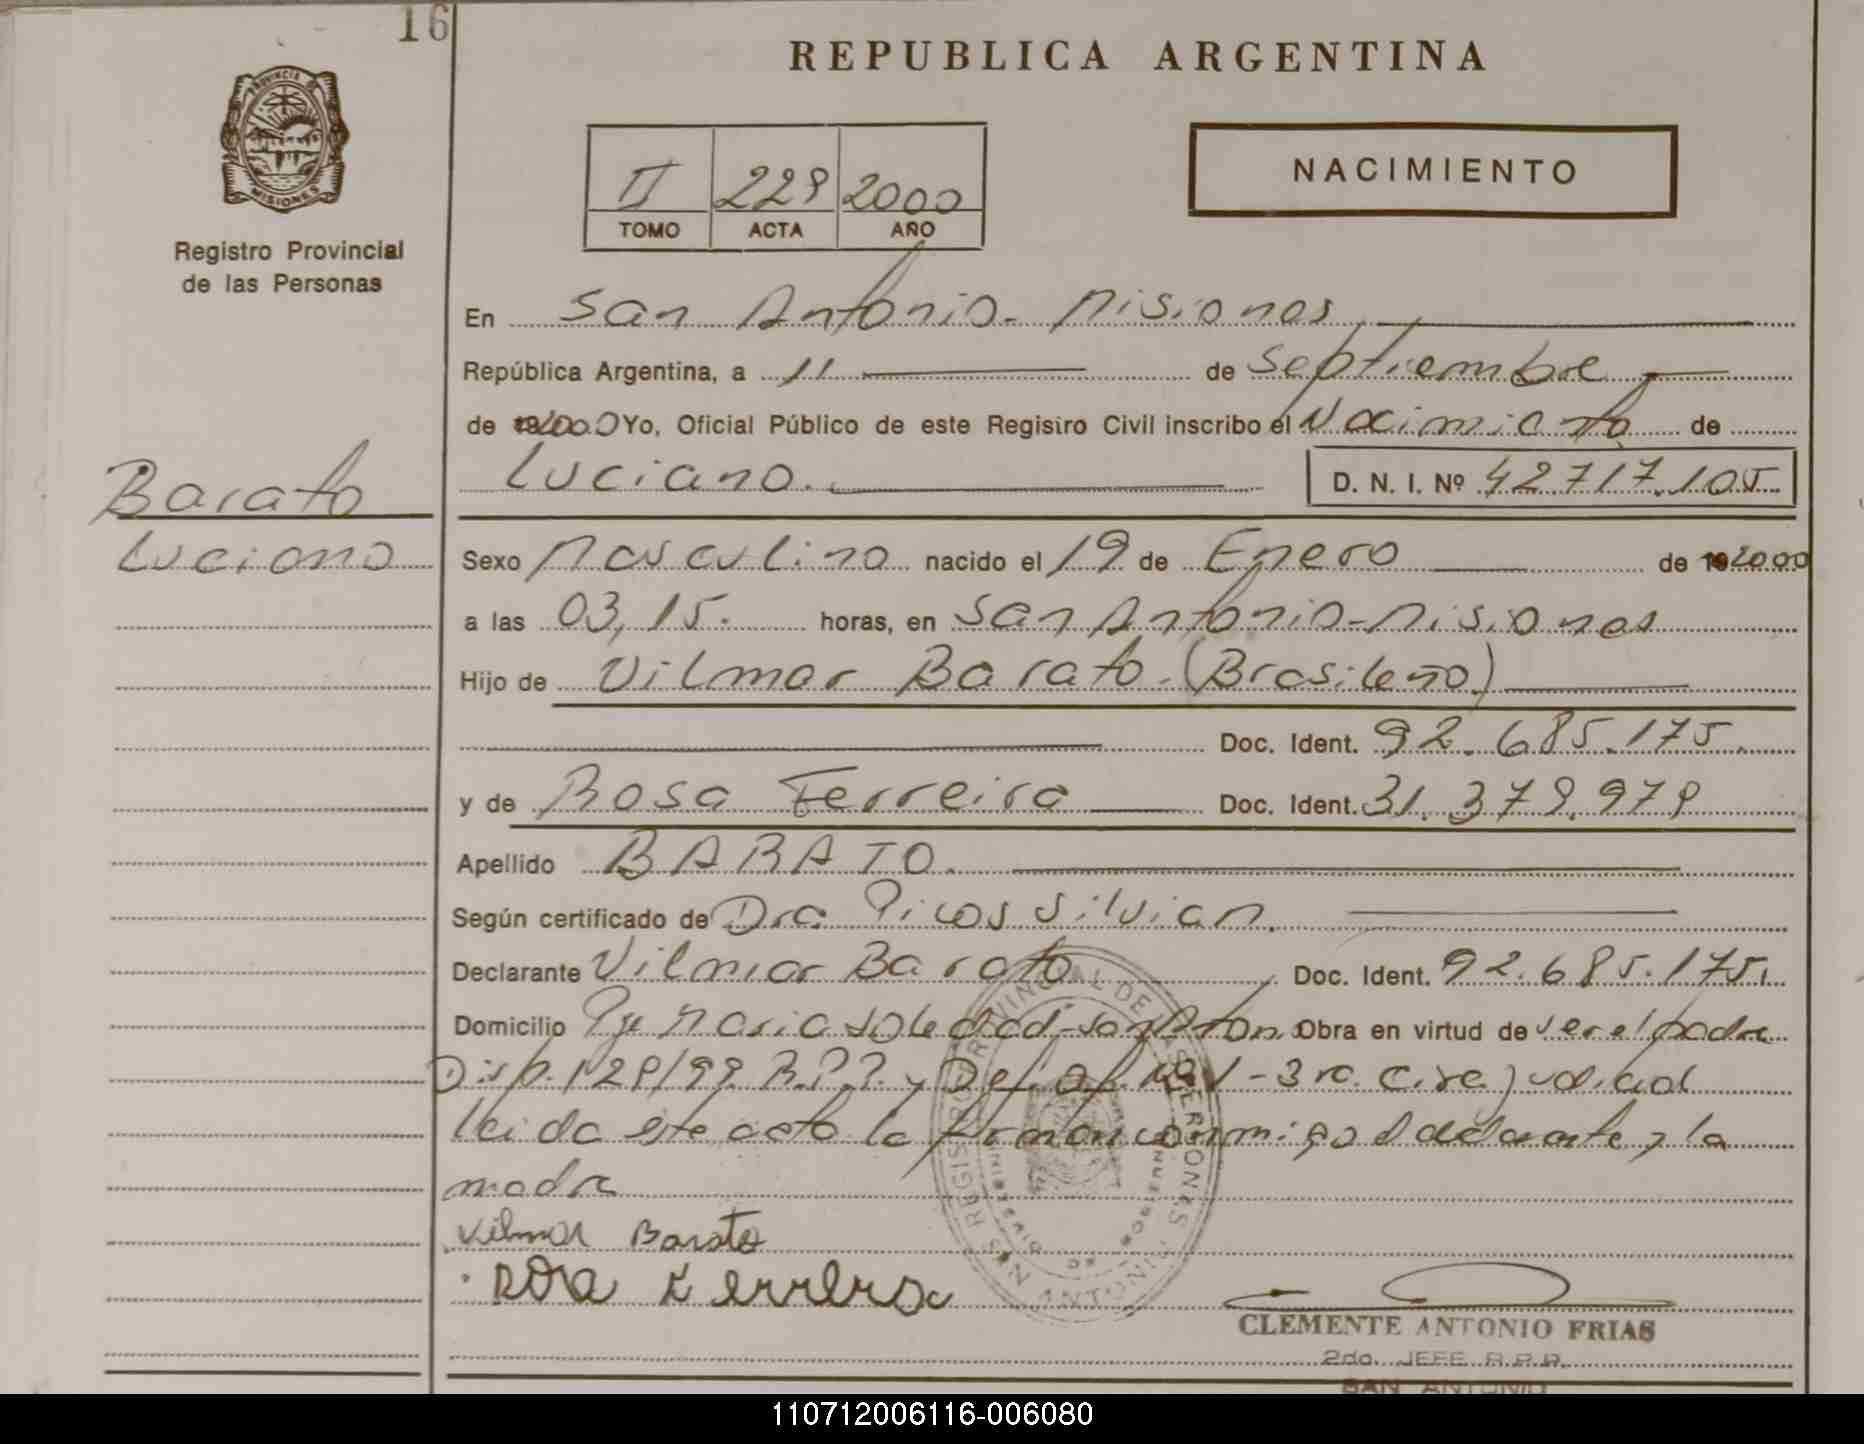 16
REPUBLICA ARGENTINA
PROVINCIA DE
MISIONES
Registro Provincial
de las Personas
II 229 2000
TOMO ACTA AÑO
NACIMIENTO
En San Antonio - Misiones
República Argentina, a 11 de Septiembre
de 2000 Yo, Oficial Público de este Registro Civil inscribo el Nacimiento de
Luciano. D. N. I. Nº 42717.105
Barato
Luciano
Sexo Masculino nacido el 19 de Enero de 192000
a las 03,15. horas, en San Antonio - Misiones
Hijo de Vilmar Barato. (Brasileño)
Doc. Ident. 92.685.175.
y de Rosa Ferreira Doc. Ident. 31.379.979
Apellido BARATO.
Según certificado de Dra Picos Silvian.
Declarante Vilmar Barato Doc. Ident. 92.685.175.
Domicilio Pje Maria Soledad - San Anton. Obra en virtud de ser el padre
Disp. 129/99 R.P.P. y Def. Of. - 3ra. Circ. Judicial
leida este acta la firman conmigo el declarante y la
madre
Vilmar Barato
Rosa Ferreira
REGISTRO PROVINCIAL DE LAS PERSONAS
SAN ANTONIO
CLEMENTE ANTONIO FRIAS
2do. JEFE R.P.P.
SAN ANTONIO
110712006116-006080